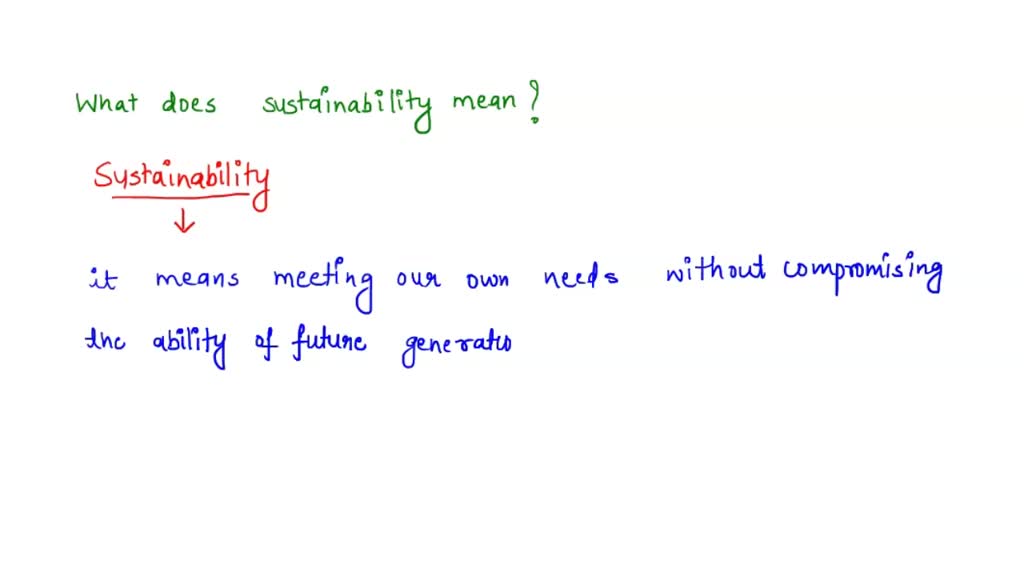 What does sustainability mean?
Sustainability
↓
it means meeting our own needs without compromising
the ability of future generatio